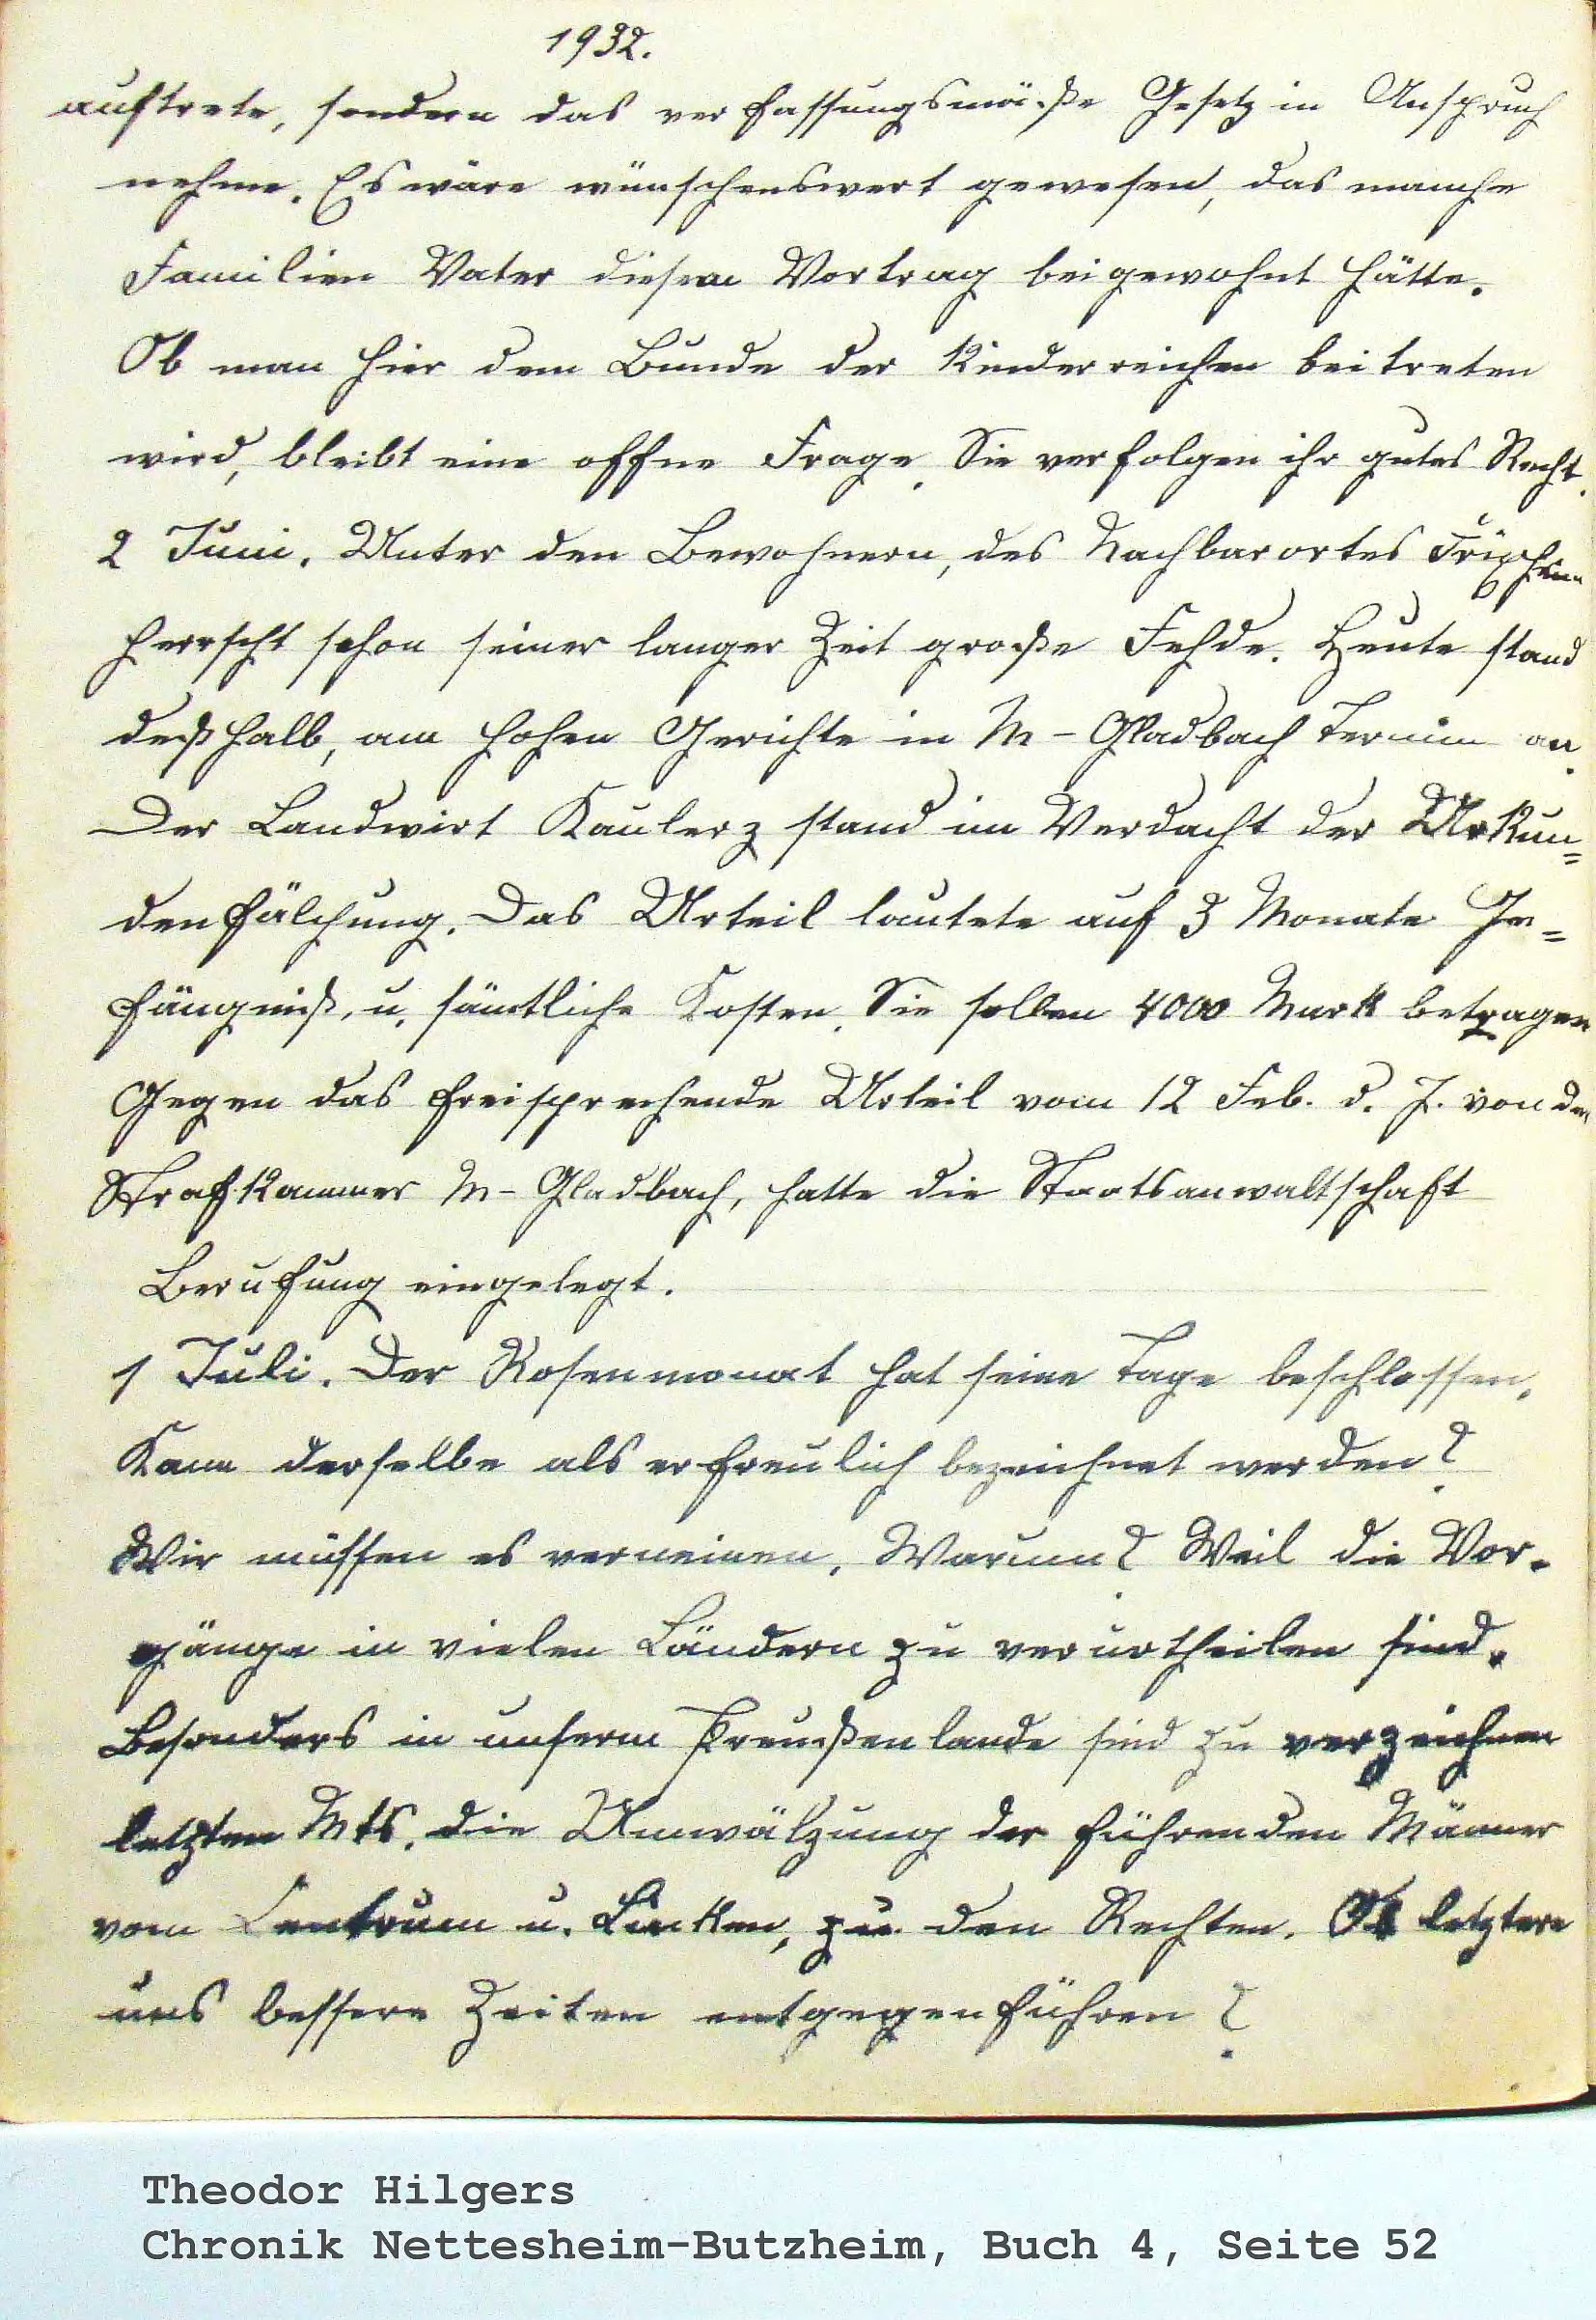 1932.
auftrete, sondern das verfassungsmäße Gesetz in Anspruch
nehme. Es wäre wünschenswert gewesen, das manche
Familien Vater diesem Vortrag beigewohnt hätte.
Ob man hier dem Bunde der Kinderreichen beitreten
wird, bleibt eine offne Frage. Sie verfolgen ihr gutes Recht.
2 Juni. Unter den Bewohnern, des Nachbarortes Frixheim
herrscht schon seiner langer Zeit große Fehde. Heute stand
deßhalb, am hohen Gerichte in M-Gladbach Termin an.
Der Landwirt Kaulerz stand im Verdacht der Urkun=
denfälchung. Das Urteil lautete auf 3 Monate Ge=
fängniß, u. sämtliche Kosten. Sie sollen 4000 Mark betragen
Gegen das freisprechende Urteil vom 12 Feb. d. J. von der
Strafkammer M-Gladbach, hatte die Staatsanwaltschaft
Berufung eingelegt.
1 Juli. Der Rosenmonat hat seine Tage beschlossen.
Kann derselbe als erfreulich bezeichnet werden?
Wir müssen es verneinen. Warum? Weil die Vor-
gänge in vielen Ländern zu verurtheilen sind.
Besonders in unserm Preußenlande sind zu verzeichnen
letzten Mts. die Umwälzung der führenden Männer
vom Centrum u. Linken, zu den Rechten. Ob letztere
uns bessere Zeiten entgegenführen?
Theodor Hilgers
Chronik Nettesheim-Butzheim, Buch 4, Seite 52